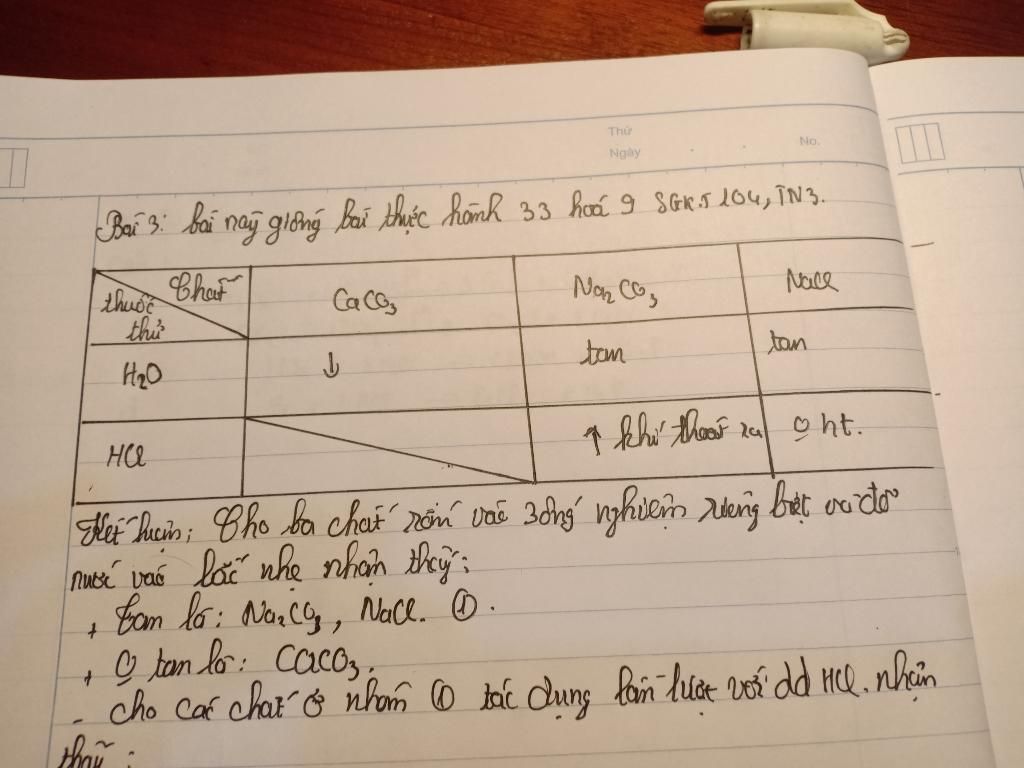 Thứ
Ngày
No.
Bài 3: bài này giống bài thực hành 33 hoá 9 SGK.T 104, TN3.
Chất
thuốc
thử
CaCO3
Na2CO3
NaCl
H2O
↓
tan
tan
HCl
↑ khí thoát ra
0 ht.
Kết luận: Cho ba chất rắn vào 3 ống nghiệm riêng biệt và đổ
nước vào lắc nhẹ nhận thấy:
+ Tan là: Na2CO3, NaCl. ①.
+ 0 tan là: CaCO3.
- cho các chất ở nhóm ① tác dụng lần lượt với dd HCl. nhận
thấy: